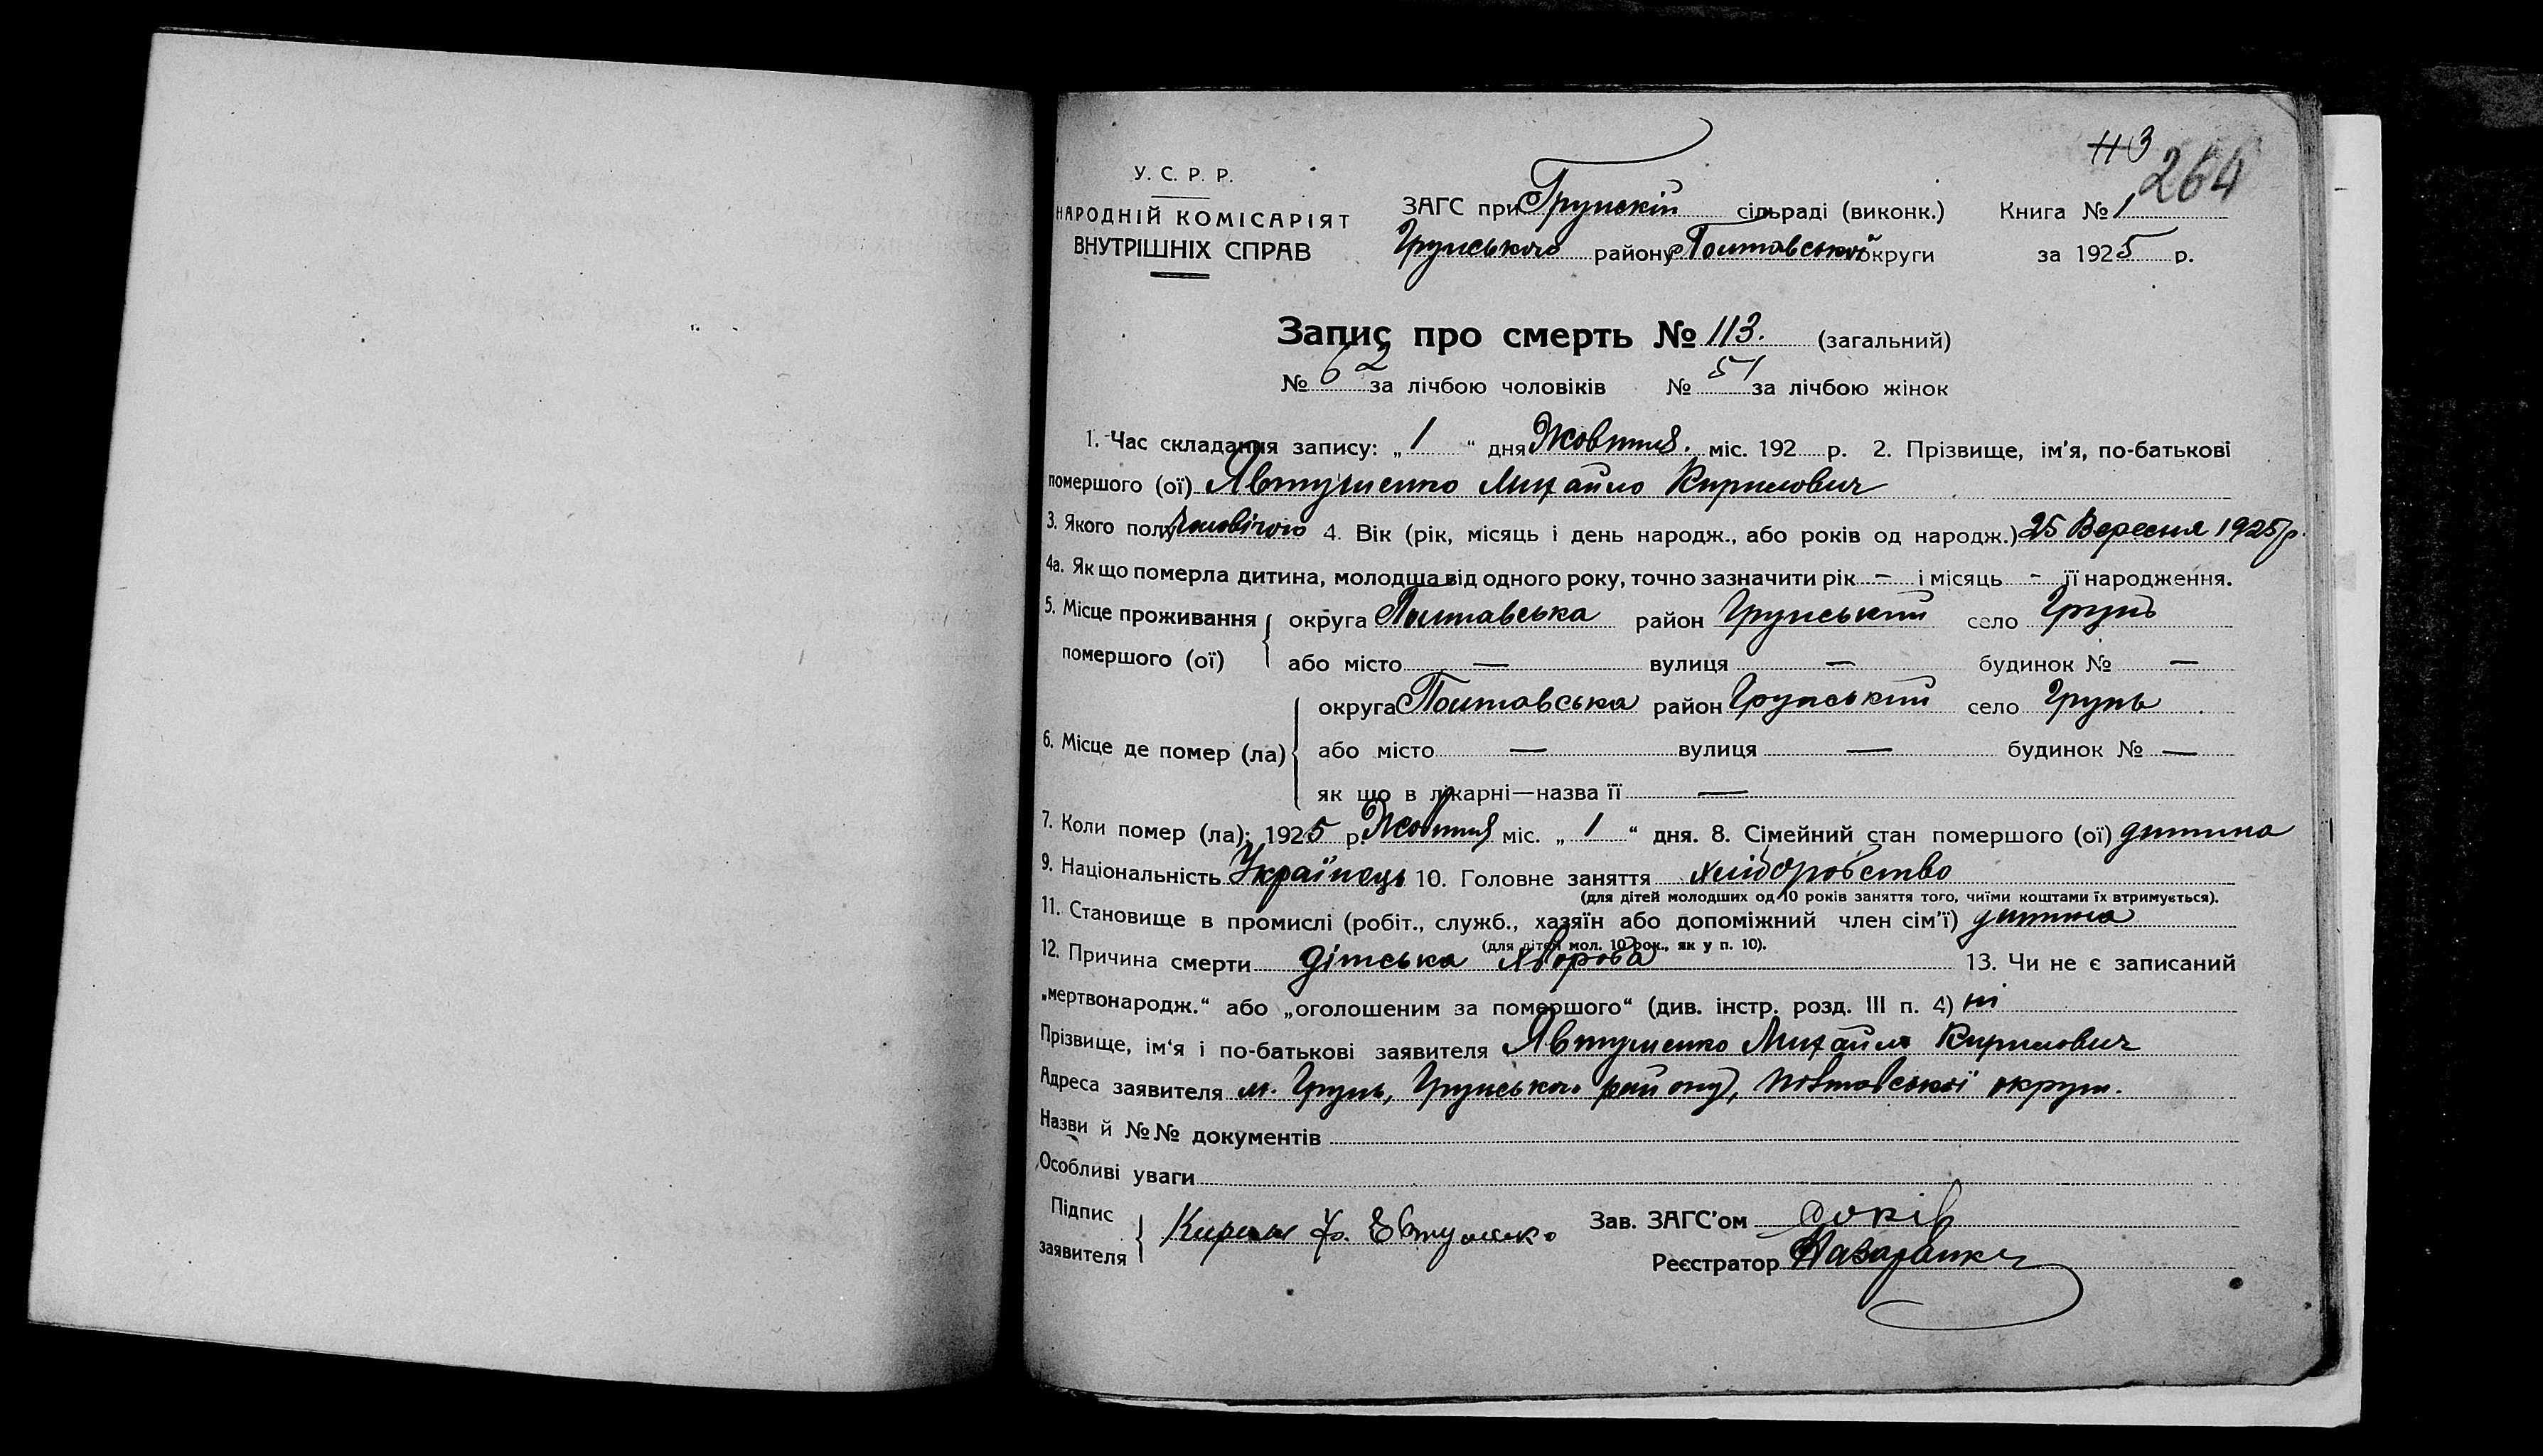 113
264
У. С. Р. Р.
НАРОДНІЙ КОМІСАРІЯТ
ВНУТРІШНІХ СПРАВ
ЗАГС при Грунскій сільраді (виконк.) Книга № 1
Грунського району Полтавської округи за 1925 р.
Запис про смерть № 113. (загальний)
№ 62 за лічбою чоловіків № 51 за лічбою жінок
1. Час складання запису: „ 1 “ дня Жовтня. міс. 192 р. 2. Прізвище, ім'я, по-батькові
помершого (ої) Явтушенко Михайло Кирилович
3. Якого полу Чоловічого 4. Вік (рік, місяць і день народж., або років од народж.) 25 Вересня 1925 р.
4а. Як що померла дитина, молодша від одного року, точно зазначити рік - і місяць - її народження.
5. Місце проживання помершого (ої) округа Полтавська район Грунський село Грунь
або місто — вулиця — будинок № —
6. Місце де помер (ла) округа Полтавська район Грунський село Грунь
або місто — вулиця — будинок № —
як що в лікарні—назва її —
7. Коли помер (ла): 1925 р. Жовтня міс. „ 1 “ дня. 8. Сімейний стан помершого (ої) дитина
9. Національність Українець 10. Головне заняття хліборобство
(для дітей молодших од 10 років заняття того, чиїми коштами їх втримується).
11. Становище в промислі (робіт., служб., хазяїн або допоміжний член сім'ї) дитина
(для дітей мол. 10 рок., як у п. 10).
12. Причина смерти дітська хвороба 13. Чи не є записаний
„мертвонародж.“ або „оголошеним за помершого“ (див. інстр. розд. III п. 4) ні
Прізвище, ім'я і по-батькові заявителя Явтушенко Михайло Кирилович
Адреса заявителя м. Грунь, Грунського району, Полтавської округи.
Назви й №№ документів
Особливі уваги
Підпис заявителя Кирил Ф. Евтушенко Зав. ЗАГС'ом
Реєстратор Назаренко